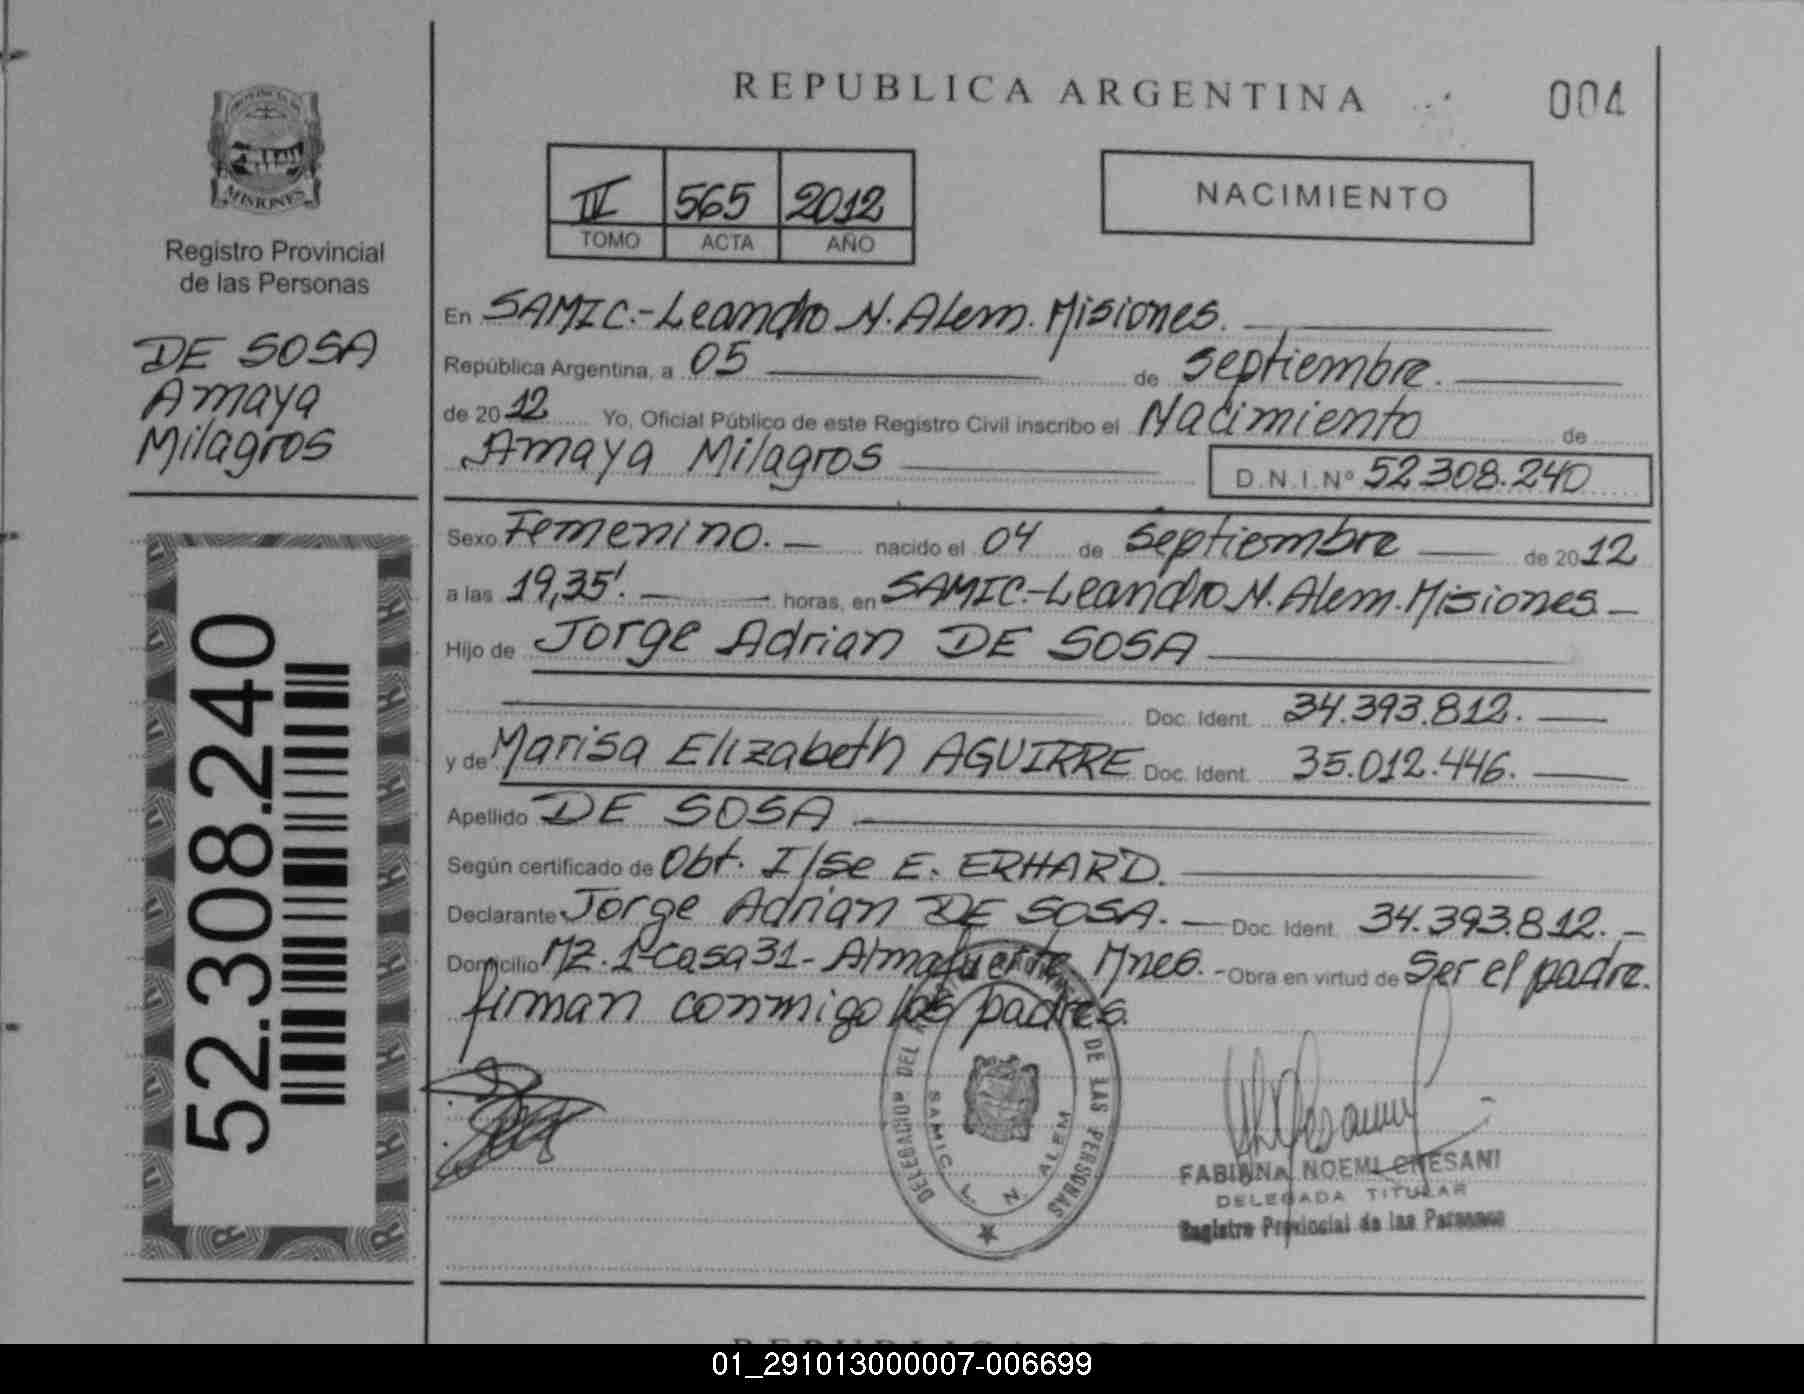 REPUBLICA ARGENTINA
004
PROVINCIA DE
MISIONES
Registro Provincial
de las Personas
DE SOSA
Amaya
Milagros
52.308.240
IV 565 2012
TOMO ACTA AÑO
NACIMIENTO
En SAMIC.-Leandro N. Alem. Misiones.
República Argentina, a 05 de septiembre.
de 2012 Yo, Oficial Público de este Registro Civil inscribo el Nacimiento de
Amaya Milagros D.N.I.Nº 52.308.240
Sexo Femenino. nacido el 04 de septiembre de 2012
a las 19,35'. horas, en SAMIC.-Leandro N. Alem. Misiones
Hijo de Jorge Adrian DE SOSA
Doc. Ident. 34.393.812.
y de Marisa Elizabeth AGUIRRE Doc. Ident. 35.012.446.
Apellido DE SOSA
Según certificado de Obt. Ilse E. ERHARD.
Declarante Jorge Adrian DE SOSA. Doc. Ident. 34.393.812.
Domicilio Mz. 1-casa 31- Almafuerte Mnes. - Obra en virtud de Ser el padre.
firman conmigo los padres.
DEL DE LAS PERSONAS
SAMIC. L. N. ALEM
FABIANA NOEMI CHESANI
DELEGADA TITULAR
Registro Provincial de las Personas
REPUBLICA ARGENTINA
01_291013000007-006699